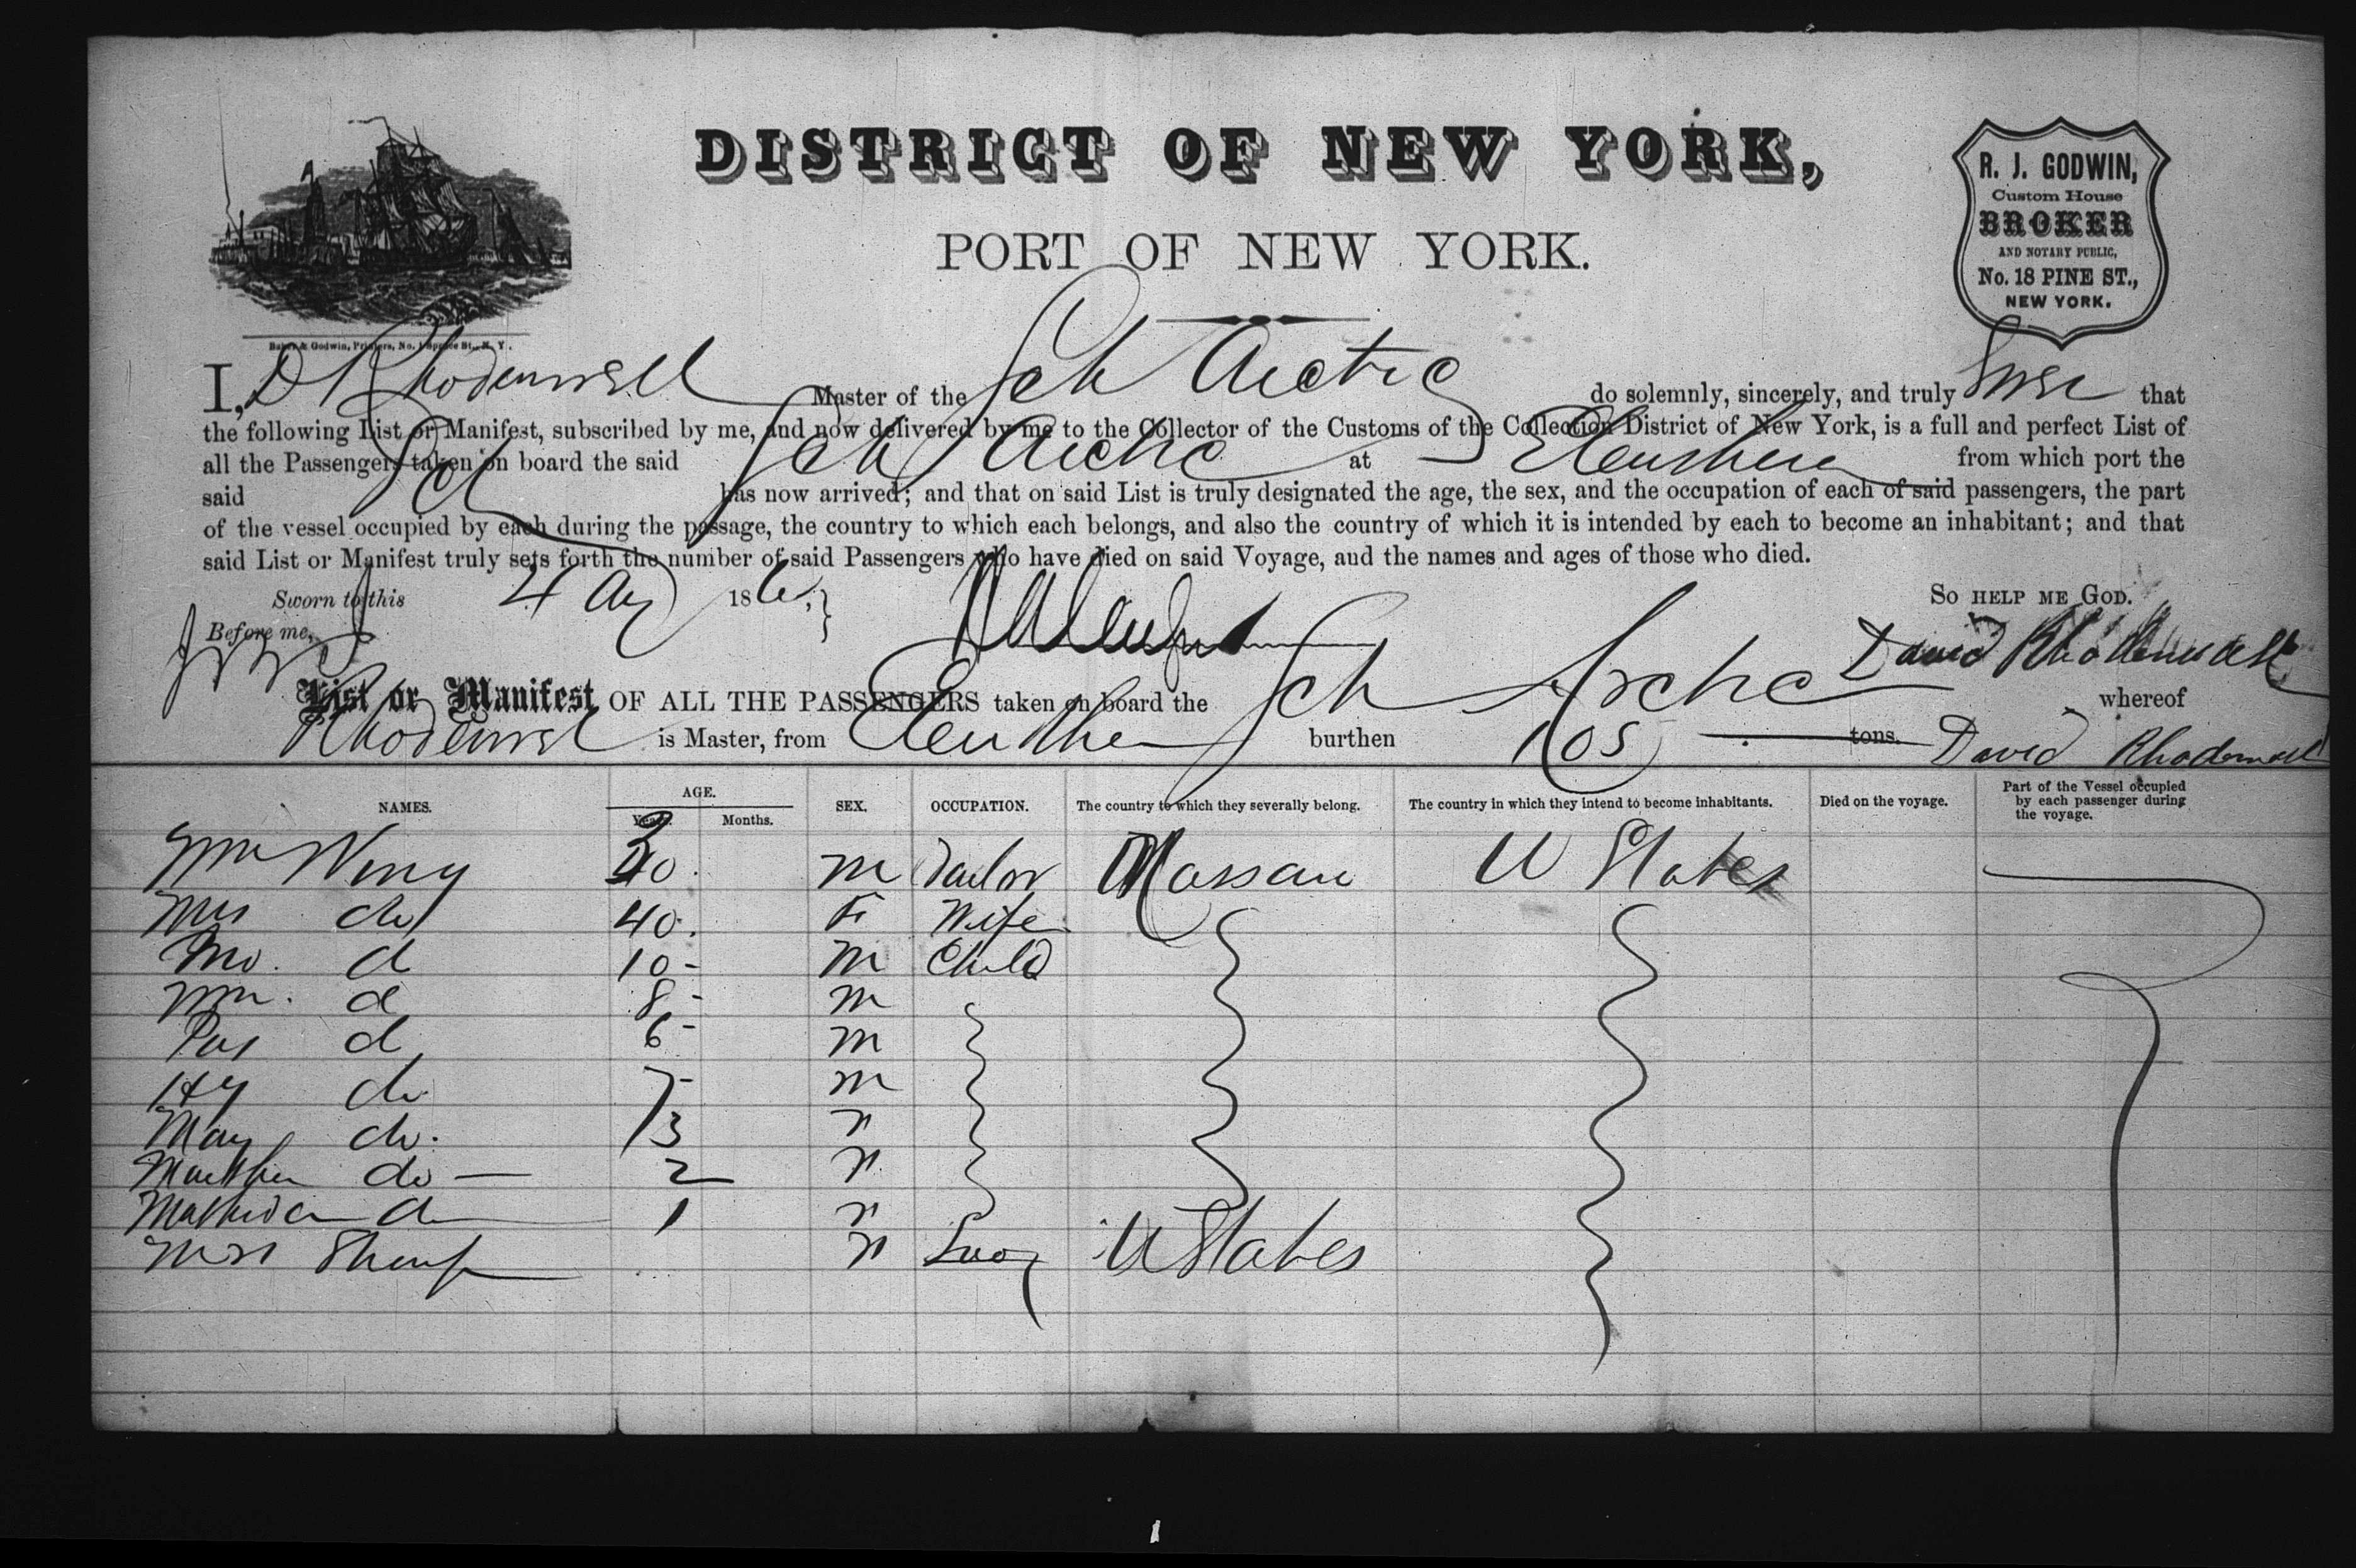 DISTRICT OF NEW YORK,
PORT OF NEW YORK.
R. J. GODWIN,
Custom House
BROKER
AND NOTARY PUBLIC,
No. 18 PINE ST.,
NEW YORK.
Baker & Godwin, Printers, No. 1 Spruce St., N. Y.
I, D Rhodenwell Master of the Sch Arctic do solemnly, sincerely, and truly that
the following List or Manifest, subscribed by me, and now delivered by me to the Collector of the Customs of the Collection District of New York, is a full and perfect List of
all the Passengers taken on board the said Sch Arctic at Eleuthera from which port the
said has now arrived; and that on said List is truly designated the age, the sex, and the occupation of each of said passengers, the part
of the vessel occupied by each during the passage, the country to which each belongs, and also the country of which it is intended by each to become an inhabitant; and that
said List or Manifest truly sets forth the number of said Passengers who have died on said Voyage, and the names and ages of those who died.
Sworn to this 4 Aug 186
So HELP ME GOD.
Before me,
David Rhodenwell
List or Manifest OF ALL THE PASSENGERS taken on board the Sch Arctic whereof
Rhodenwell is Master, from Eleuthera burthen 105 tons. David Rhodenwell
NAMES. AGE. Years. Months. SEX. OCCUPATION. The country to which they severally belong. The country in which they intend to become inhabitants. Died on the voyage. Part of the Vessel occupied by each passenger during the voyage.
Wm 40 M Nassau U States
Mrs do 40. F Wife
d 10 - M Child
Wm. d 8 - M
d 6 - M
Hy do 7 - M
May do. 3
Martha do 2
Mathilda d 1
Mrs Sharp U States